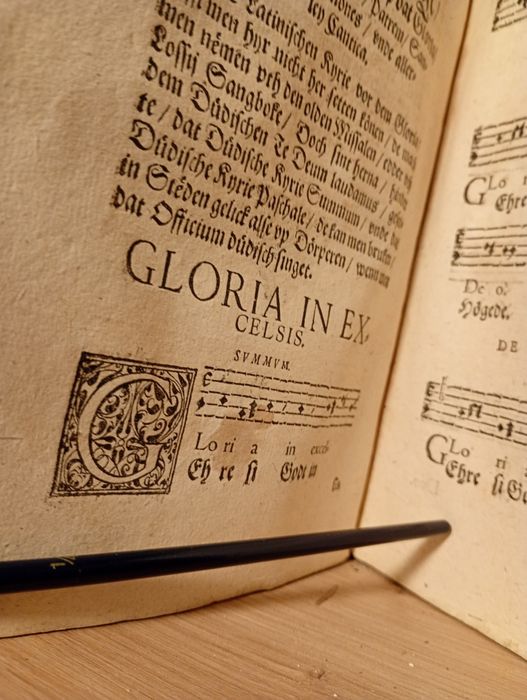 Latinischen Kyrie vor dem Gloria
men hyr nicht her setten könen / de mach
men nēmen vth den olden Missalen / edder vth
Lossij Sangboke / Doch sint herna /
dem Düdischen Te Deum laudamus /
te / dat Düdische Kyrie Summum / vnde dat
Düdische Kyrie Paschale / de kan men bruken /
in Steden gelick alse vp Dörperen / wenn men
dat Officium düdisch singet.
GLORIA IN EX,
CELSIS.
SVMMVM.
G
Lo ri a in excel-
Eh re si Gode in
GLo ri
Ehre
De o.
Högede.
DE
GLo ri
Ehre si Go